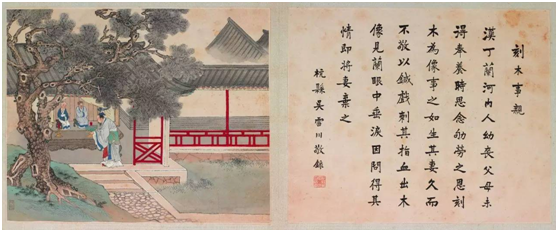 刻木事親
漢丁蘭河內人幼喪父母未
得奉養時思念劬勞之恩刻
木為像事之如生其妻久而
不敬以鍼戲刺其指血出木
像見蘭眼中垂淚因問得其
情即將妻棄之
杭縣吳雪川敬錄